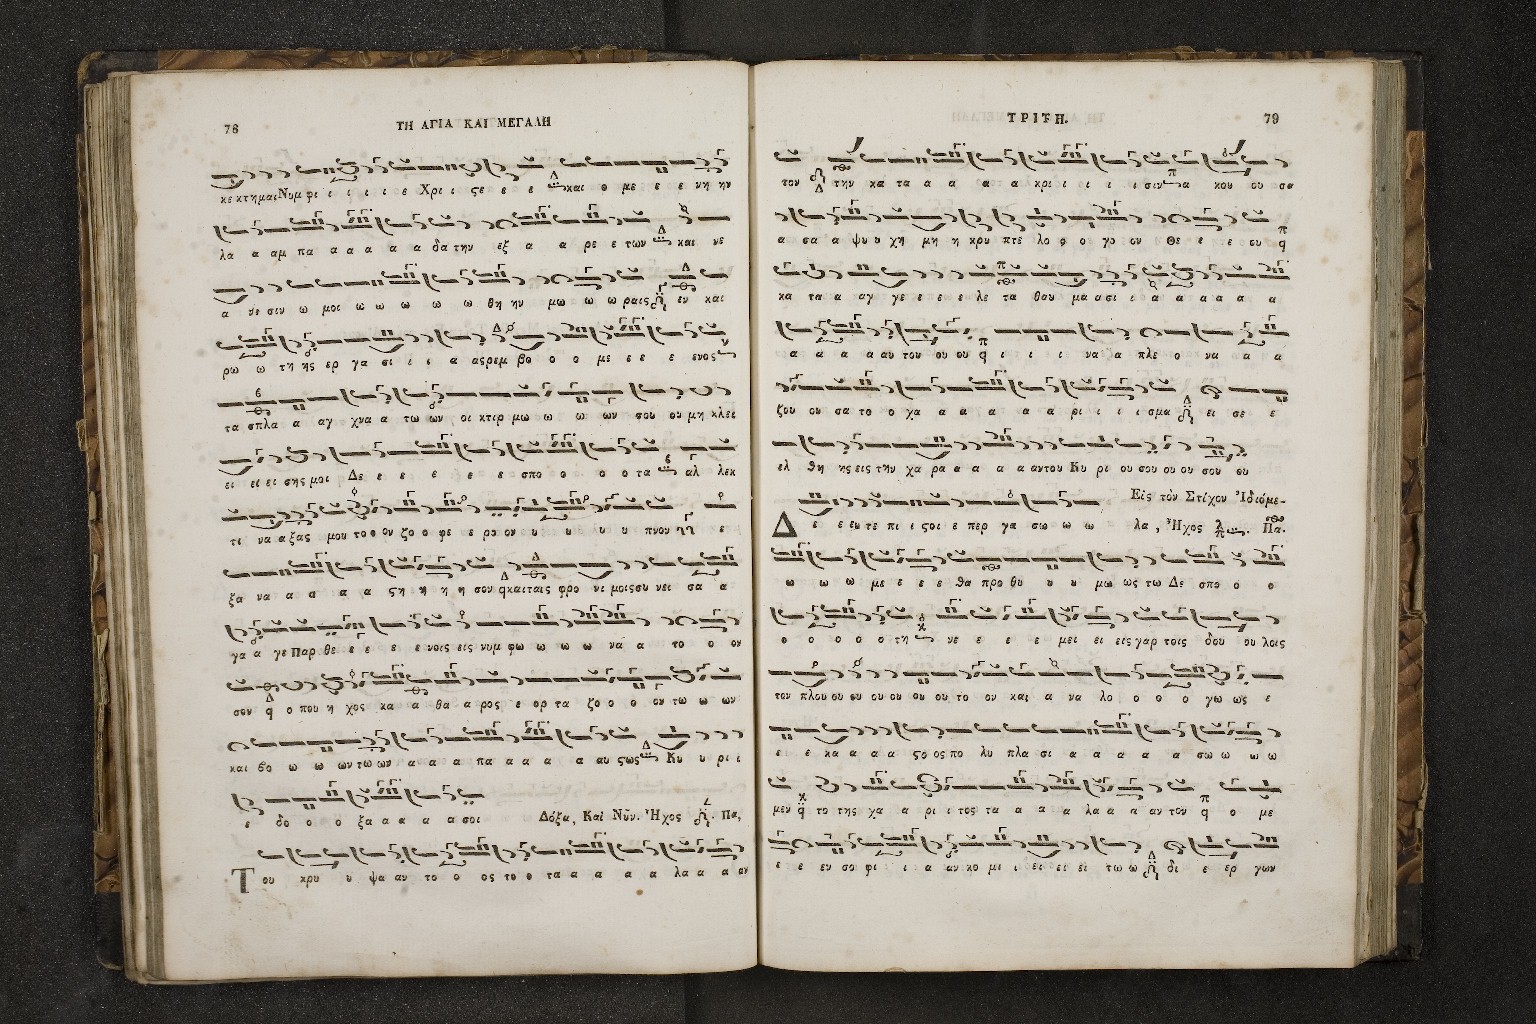 76
ΤΗ ΑΓΙΑ ΚΑΙ ΜΕΓΑΛΗ
κε κτημαι Νυμ φι ι ι ι ε Χρι ι ςε ε ε και ο με ε ε νη ην
λα α αμ πα α α α α δα την εξ α α ρε ε των και νε
α νε σιν ω μοι ω ω ω ω ω θη ην μω ω ω ραις εν και
ρω ω τη ης ερ γα σι ι ι α ας ρεμ βο ο ο με ε ε ε ενος
τα σπλα α αγ χνα α τω ων οι κτιρ μω ω ω ων σου ου μη κλει
ει ει ει σης μοι Δε ε ε ε ε ε ε σπο ο ο ο τα αλ λεκ
τι να α ξας μου το ο ον ζο ο φε ε ρο ον υ υ υ υ υ πνον ε
ξα να α α α α ςη η η η σον και ταις φρο νι μοις συ νει σα α
γα α γε Παρ θε ε ε ε ε νοις εις νυμ φω ω ω ω να α το ο ον
σον ο που η χος κα α θα α ρος ε ορ τα ζο ο ο ον τω ω ων
και βο ω ω ων τω ων α α α πα α α α α αυ ςως Κυ υ ρι ι
ε δο ο ο ξα α α α α σοι Δόξα, Καὶ Νῦν. Ἦχος Πα,
Του κρυ υ ψα αν το ο ος το ο τα α α α α λα α α αν
ΤΡΙΤΗ.
79
τον την κα τα α α α α κρι ι ι ι ι σιν α κου ου σα
α σα α ψυ υ χη μη η κρυ πτε λο ο ο γο ον Θε ε ε ου
κα τα α αγ γε ε ε ε λε τα θαυ μα α σι ι α α α α α α
α α α α αυ του ου ου ου ι ι ι να α α πλε ο να α α
ζου ου σα το ο χα α α α α α ρι ι ι ι σμα ει σε ε
ελ θη ης εις την χα ρα α α α α αν του Κυ ρι ου σου ου ου σου ου
Εἰς τὸν Στίχον Ἰδιόμε-
Δ ε ε ευ τε πι ι ςοι ε περ γα σω ω ω λα, Ἦχος Πα.
ω ω ω με ε ε ε θα προ θυ υ υ μω ως τω Δε σπο ο ο
ο ο ο ο ο τη νε ε ε ε ε μει ει εις γαρ τοις δου ου λοις
τον πλου ου ου ου ου ου ου το ον και α να λο ο ο ο γω ως ε
ε ε κα α α α ςο ος πο λυ πλα σι α α α α α σω ω ω ω
μεν το της χα α ρι ι τος τα α α α λα α α αν τον ο με
ε ε εν σο φι ι α αν κο μι ι ει ει ει τω ω δι ε ερ γων